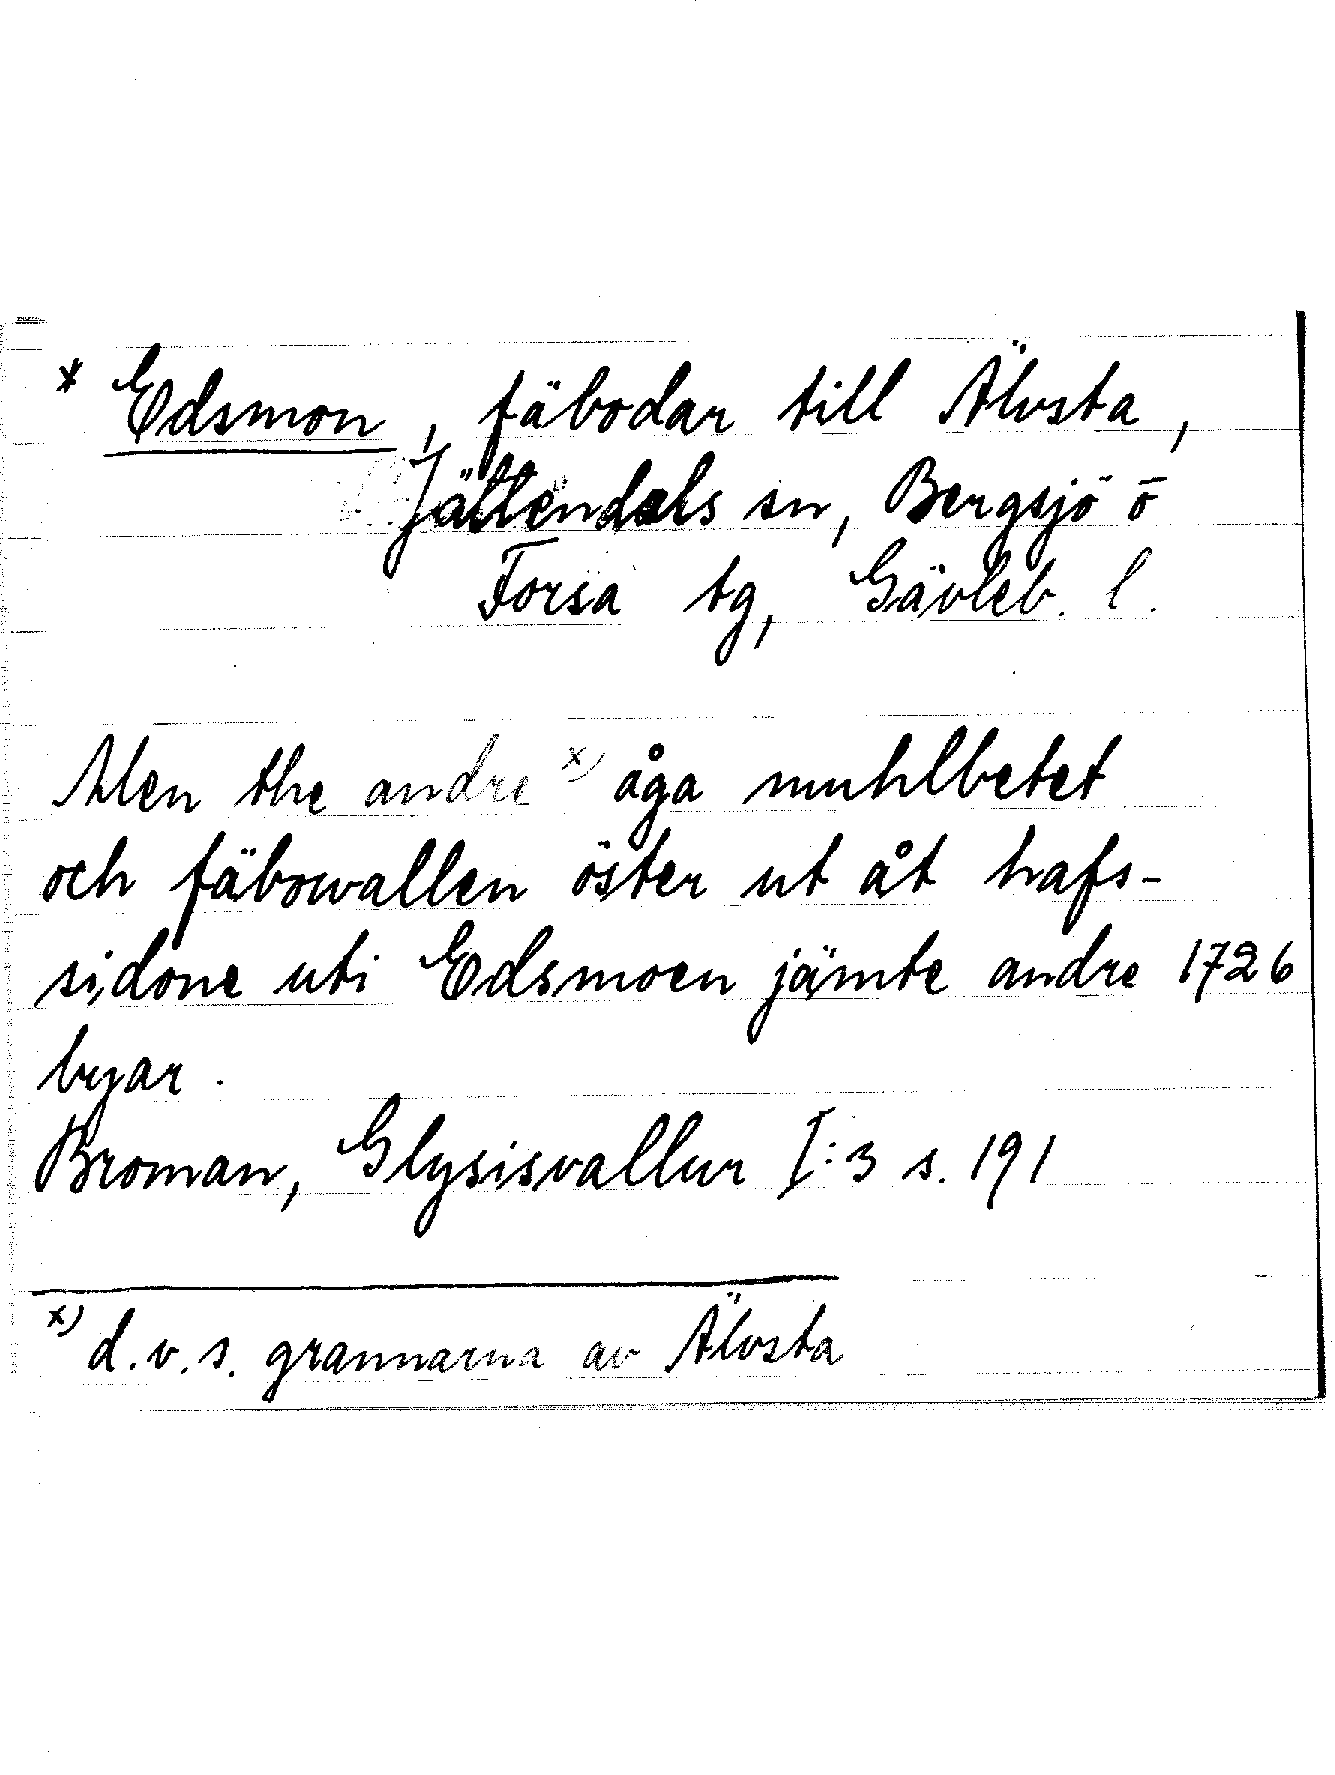 * Edsmon, fäbodar till Älvsta,
Jättendals sn, Bergsjö ō
Forsa tg, Gävleb. l.
Men the andre x) åga muhlbetet
och fäbowallen öster ut åt hafs-
sidone uti Edsmoen jämte andre 1726
byar.
Broman, Glysisvallur I:3 s. 191
x) d.v.s. grannarna av Älvsta